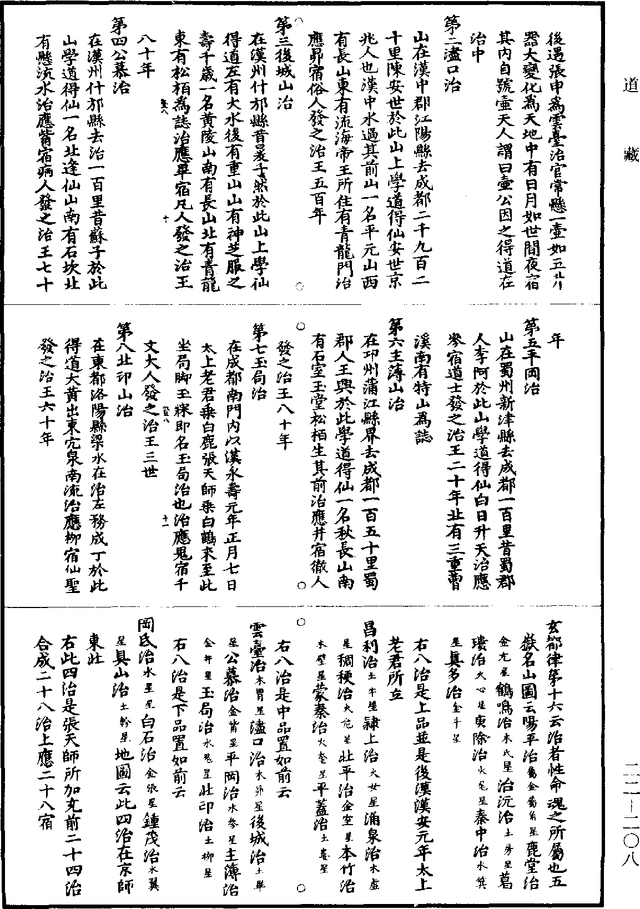 道藏
後遇張申為雲臺治官常懸一壺如五升
器大變化為天地中有日月如世間夜宿
其內自號壺天人謂曰壺公因之得道在
治中
第二濜口治
山在漢中郡江陽縣去成都二千九百二
十里陳安世於此山上學道得仙安世京
兆人也漢中水過其前山一名平元山西
有長山東有流海帝王所住有青龍門治
應昴宿俗人發之治王五百年
第三後城山治
在漢州什邡縣昔晏千然於此山上學仙
得道左有大水後有重山山有神芝服之
壽千歲一名黃陵山南有長山北有青龍
東有松栢為誌治應畢宿凡人發之治王
八十年
第四公慕治
在漢州什邡縣去治一百里昔蘇子於此
山學道得仙一名北逢仙山南有石坎北
有懸流水治應觜宿病人發之治王七十
年
第五平岡治
山在蜀州新津縣去成都一百里昔蜀郡
人李阿於此山學道得仙白日升天治應
參宿道士發之治王二十年北有三重曹
溪南有特山為誌
第六主薄山治
在邛州蒲江縣界去成都一百五十里蜀
郡人王興於此學道得仙一名秋長山南
有石室玉堂松栢生其前治應井宿徵人
發之治王八十年
第七玉局治
在成都南門內以漢永壽元年正月七日
太上老君乘白鹿張天師乘白鶴來至此
坐局脚玉牀即名玉局治也治應鬼宿千
丈大人發之治王三世
第八北邙山治
在東都洛陽縣梁水在治左務成丁於此
得道大黃出東宅泉南流治應柳宿仙聖
發之治王六十年
玄都律第十六云治者性命魂之所屬也五
嶽名山圖云陽平治屬金屬角星鹿堂治
金亢星鶴鳴治木氐星治沅治土房星葛
璝治火心星東除治火尾星秦中治水箕
星真多治金斗星
右八治是上品並是後漢漢安元年太上
老君所立
昌利治土牛星隸上治火女星涌泉治水虛
星稠稉治火危星北平治金室星本竹治
木壁星蒙秦治火奎星平蓋治土婁星
右八治是中品置如前云
雲臺治木胃星濜口治木昴星後城治土畢
星公慕治金觜星平岡治水參星主薄治
金井星玉局治水鬼星北邙治土柳星
右八治是下品置如前云
岡氐治水星星白石治金張星鍾茂治水翼
星具山治土軫星地圖云此四治在京師
東北
右此四治是張天師所加充前二十四治
合成二十八治上應二十八宿
二二—二〇八